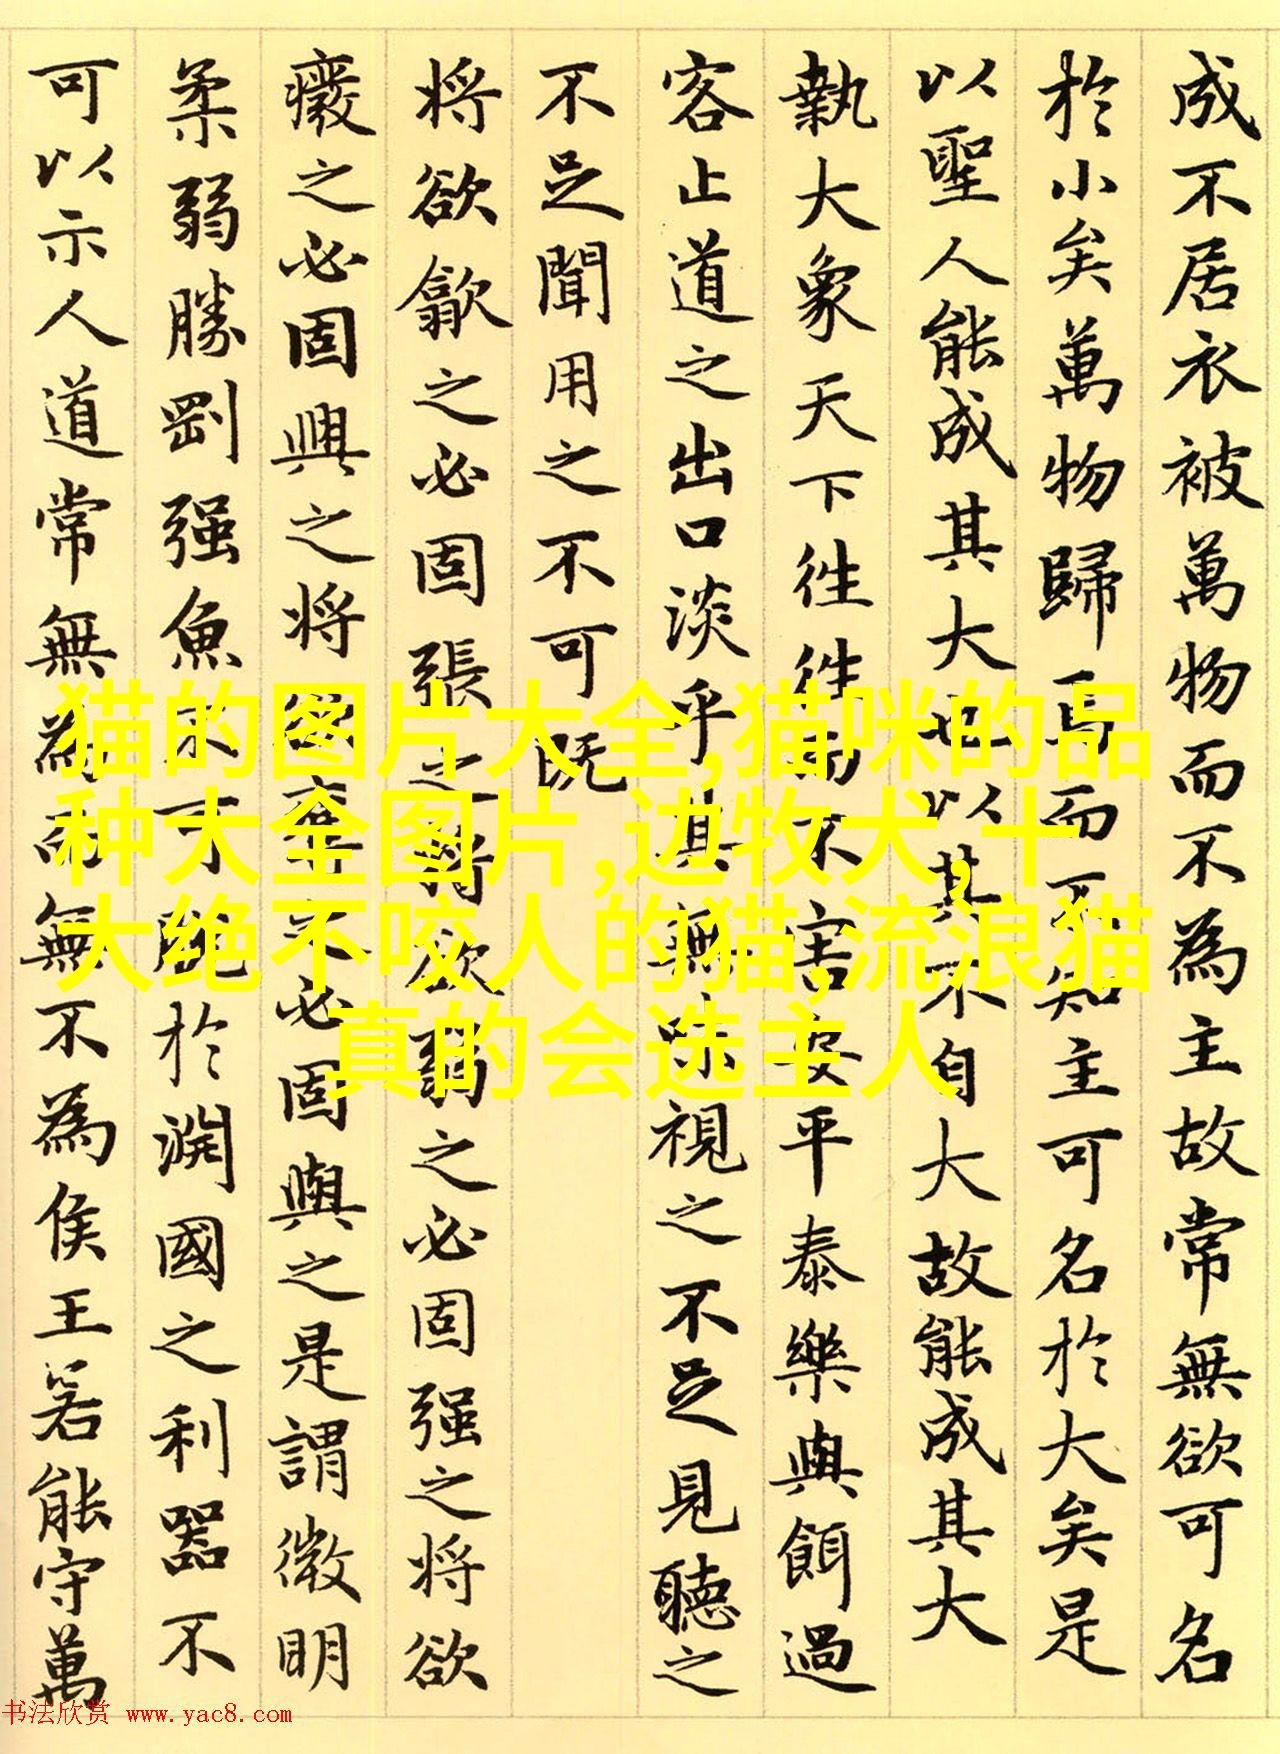 成不居衣被萬物而不為主故常無欲可名
於小矣萬物歸焉而不知主可名於大矣是
以聖人能成其大也以其不自大故能成其大
執大象天下往往而不害安平泰樂與餌過
客止道之出口淡乎其無味視之不足見聽之
不足聞用之不可既
将欲歙之必固張之将欲弱之必固强之将欲
癈之必固興之将欲奪之必固與之是謂微明
柔弱勝剛强魚不可脫於淵國之利器不
可以示人道常無為而無不為侯王若能守萬
猫的图片大全,猫咪的品
种大全图片,边牧犬,十
大绝不咬人的猫,流浪猫
真的会选主人
书法欣赏 www.yac8.com